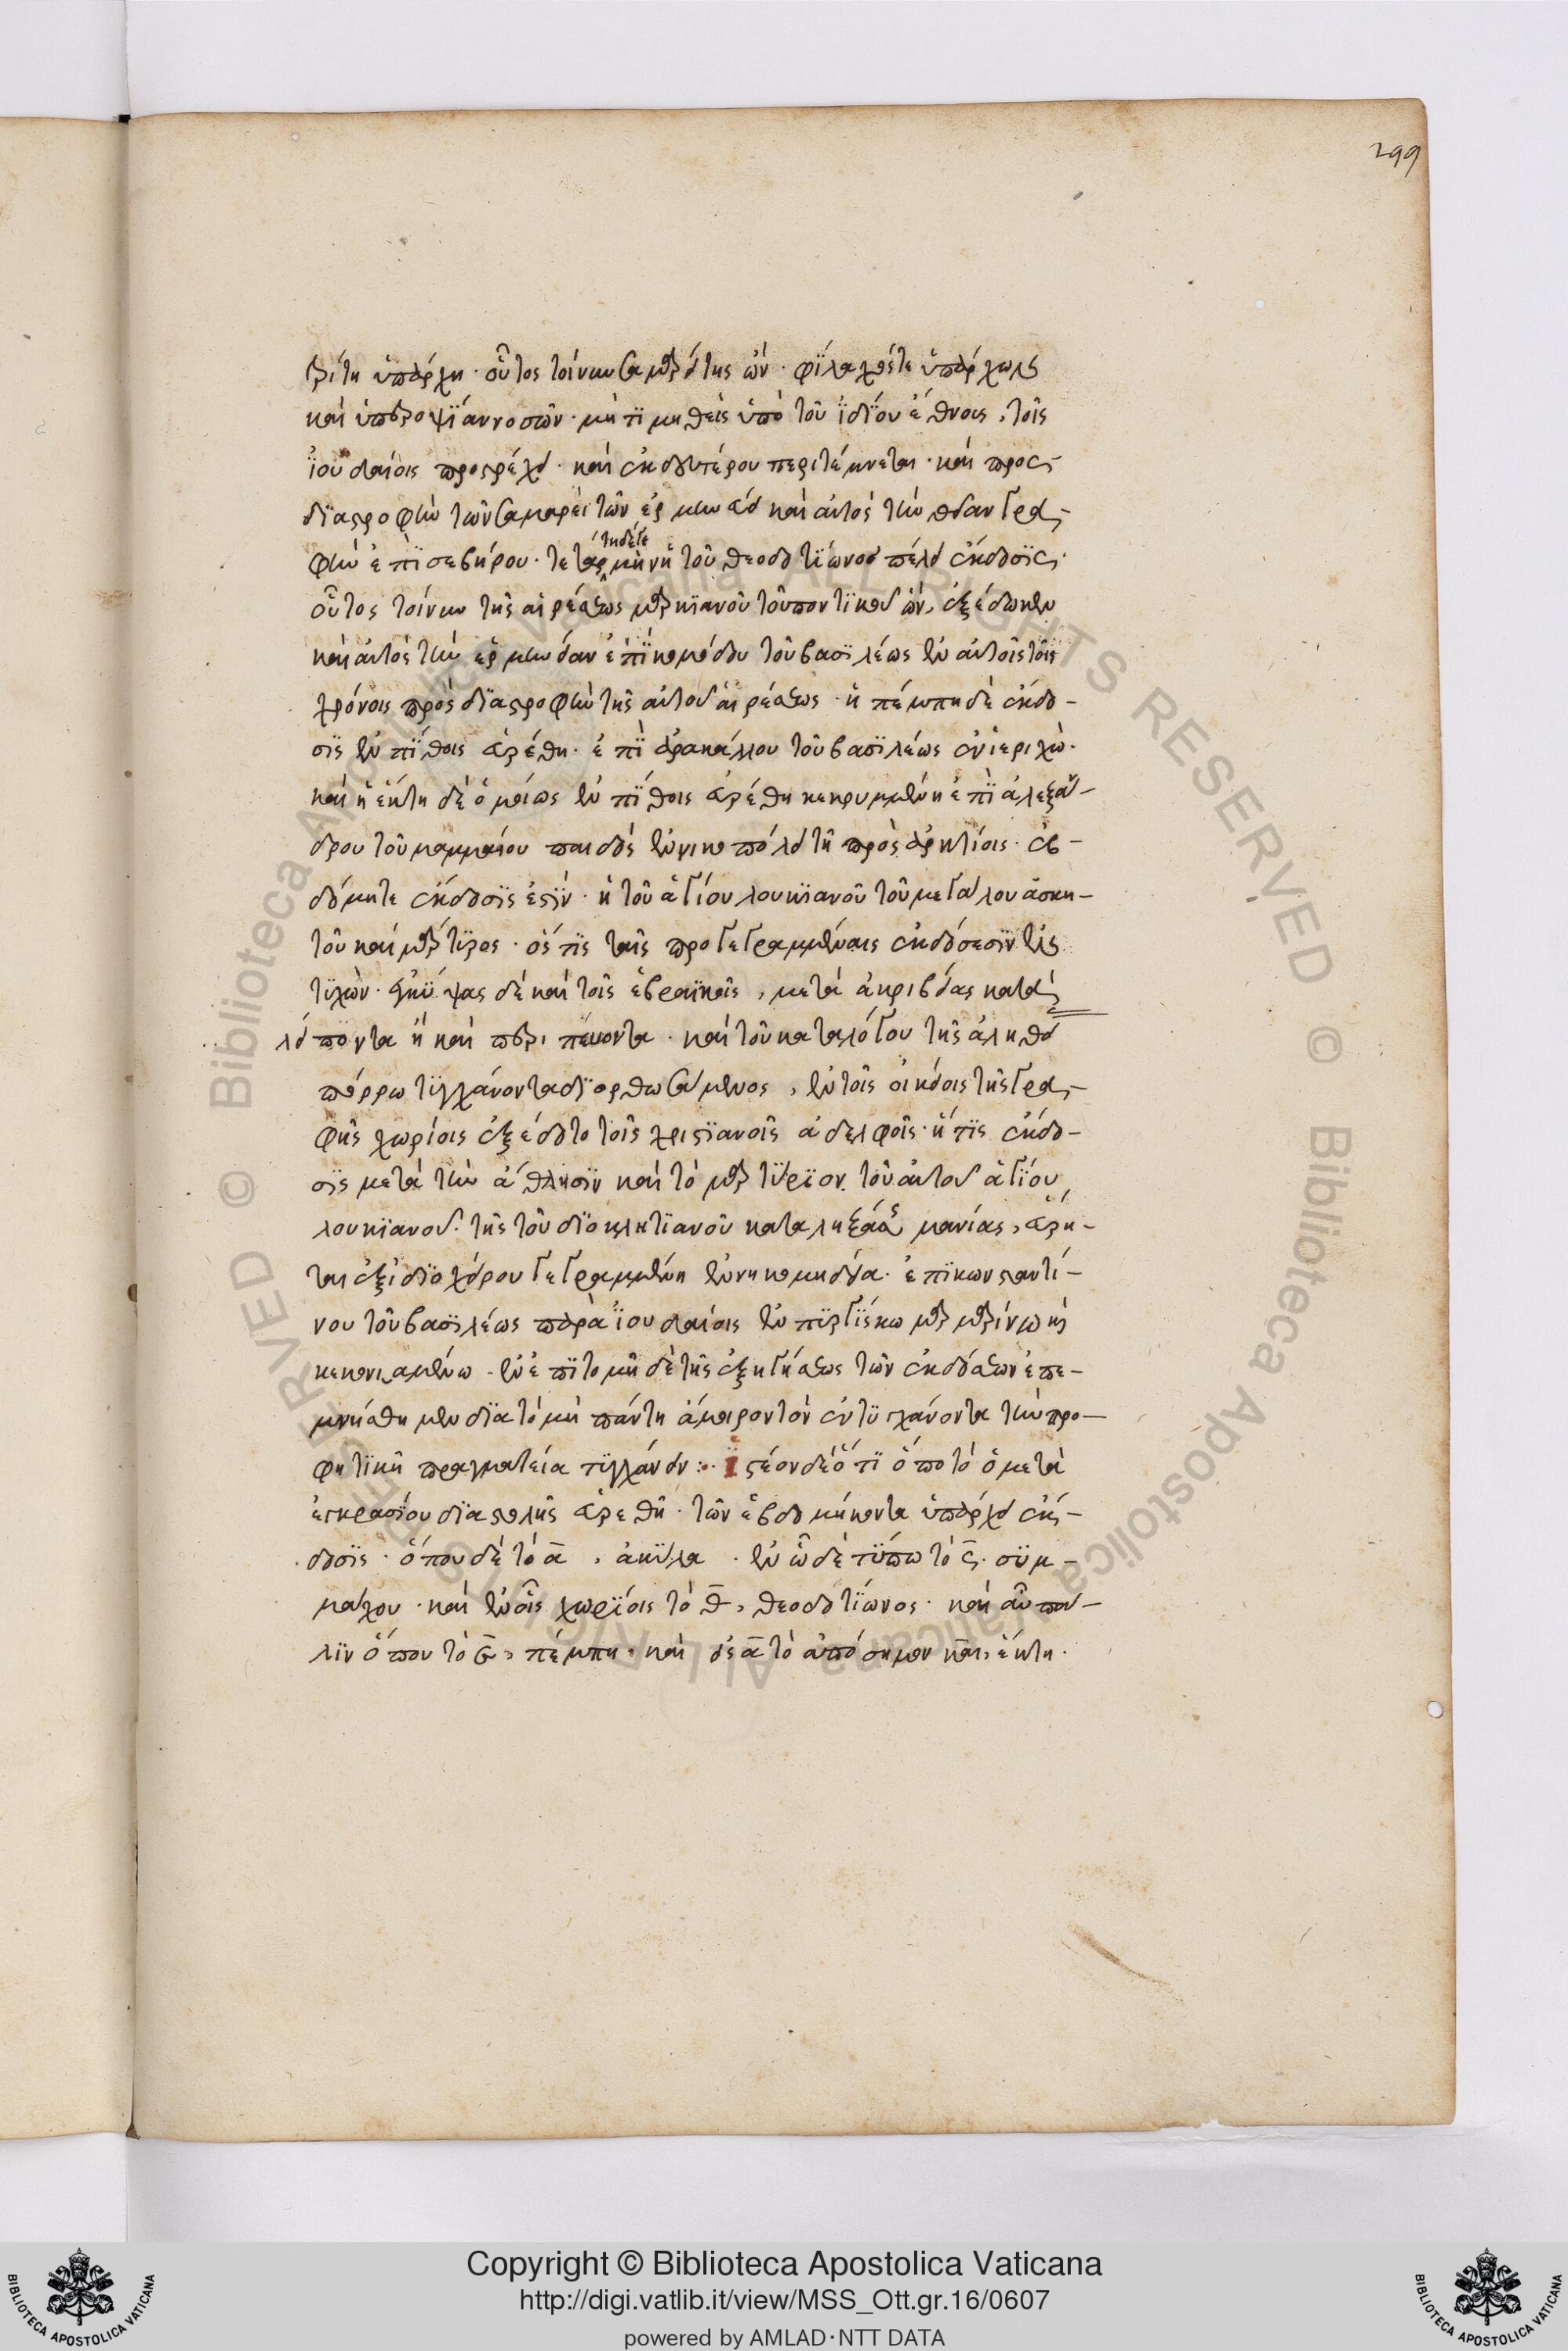 299
τρίτη ὑπάρχη · οὗτος τοίνυν σαμαρίτης ὤν · φϊλαρχός τε ὑπάρχων
καὶ ὑπεροψΐαν νοσῶν · μὴ τϊμηθεὶς ὑπὸ τοῦ ϊδΐου ἔθνους, τοῖς
ϊουδαίοις προστρέχει · καὶ ἐκ δευτέρου περιτέμνεται · καὶ προς
δϊαστροφὴν τῶν σαμαρειτῶν ἑρμηνεύει καὶ αὐτὸς τὴν θείαν γρα-
φὴν ἐπὶ σεβήρου · τετάρτη δέ γε ἑρμηνὴ τοῦ θεοδοτΐωνος πέλει ἔκδοσϊς ·
οὗτος τοίνυν τῆς αἱρέσεως μαρκϊανοῦ τοῦ ποντϊκοῦ ὤν, ἐξέδωκεν
καὶ αὐτὸς τὴν ἑρμηνείαν ἐπῒ κομόδου τοῦ βασϊλέως ἐν αὐτοῖς τοῖς
χρόνοις πρὸς δϊαστροφὴν τῆς αὐτοῦ αἱρέσεως · ἡ πέμπτη δὲ ἔκδο-
σϊς ἐν πΐθοις εὑρέθη · ἐπῒ καρακάλλου τοῦ βασϊλέως ἐν ἱεριχὼ ·
καὶ ἡ ἕκτη δὲ ὁμοίως ἐν πΐθοις εὑρέθη κεκρυμμένη ἐπῒ ἀλεξάν-
δρου τοῦ μαμμαίου παιδὸς ἐν νικοπόλει τῇ πρὸς ἀρκτίοις · ἑβ-
δόμη τε ἔκδοσϊς ἐστϊν · ἡ τοῦ ἁγίου λουκϊανοῦ τοῦ μεγάλου ἀσκη-
τοῦ καὶ μάρτϋρος · ὅστϊς ταῖς προγεγραμμέναις ἐκδόσεσϊν ἐν-
τϋχὼν · ἐγκύψας δὲ καὶ τοῖς ἑβραϊκοῖς, μετὰ ἀκριβείας κατὰ
λείποντα ἢ καὶ περιττεύοντα · καὶ τοῦ καταλόγου τῆς ἀληθεί
πόρρω τϋγχάνοντα δϊορθωσάμενος, ἐν τοῖς οἰκείοις τῆς γρα-
φῆς χωρίοις ἐξέδοτο τοῖς χριστϊανοῖς ἀδελφοῖς · ἥτϊς ἔκδο-
σϊς μετὰ τὴν ἄθλησϊν καὶ τὸ μαρτΰρϊον τοῦ αὐτοῦ ἁγΐου
λουκϊανοῦ · τῆς τοῦ δϊοκλητϊανοῦ καταληξάσης μανίας, εὕρη-
ται ἐξ ἰδϊοχείρου γεγραμμένη ἐν νηκομηδεία · ἐπϊ κωνσταντί-
νου τοῦ βασϊλέως παρὰ ϊουδαίοις ἐν πϋργΐσκω μαρμαρίνω κ
κεκονιαμένω · ἐν ἐπϊτομῆ δὲ τῆς ἐξηγήσεως τῶν ἐκδόσεων ἐπε-
μνήσθημεν δϊα τὸ μὴ πάντη ἄμοιρον τὸν ἐντϋγχάνοντα τὴν προ-
φητϊκῆ πραγματεία τϋγχάνειν :· Ϊστέον δὲ ὅτϊ ὁπότὸ ὁ μετὰ
ἐγκρασίου δϊαστολῆς εὑρεθῆ · τῶν ἑβδομήκοντα ὑπάρχει ἔκ-
δοσϊς · ὅπου δὲ τὸ α, ἀκΰλα · ἐν ᾧ δὲ τΰπω τὸ ς · σϋμ-
μάχου · καὶ ἐν οἷς χωρΐοις τὸ θ, θεοδοτΐωνος · καὶ αὖ πά-
λϊν ὅπου τὸ ε, πέμπτη · καὶ εἰς ἃ τὸ ἀπόσημον καὶ, ἕκτη ·
Copyright © Biblioteca Apostolica Vaticana
http://digi.vatlib.it/view/MSS_Ott.gr.16/0607
powered by AMLAD·NTT DATA